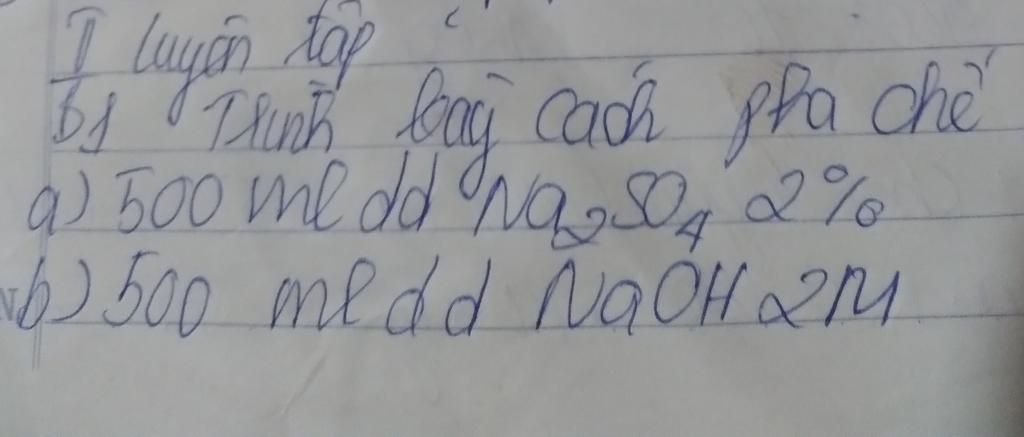 I luyện tập
b1 Trình bày cách pha chế
a) 500 ml dd Na₂SO₄ 2%
b) 500 ml dd NaOH 2M